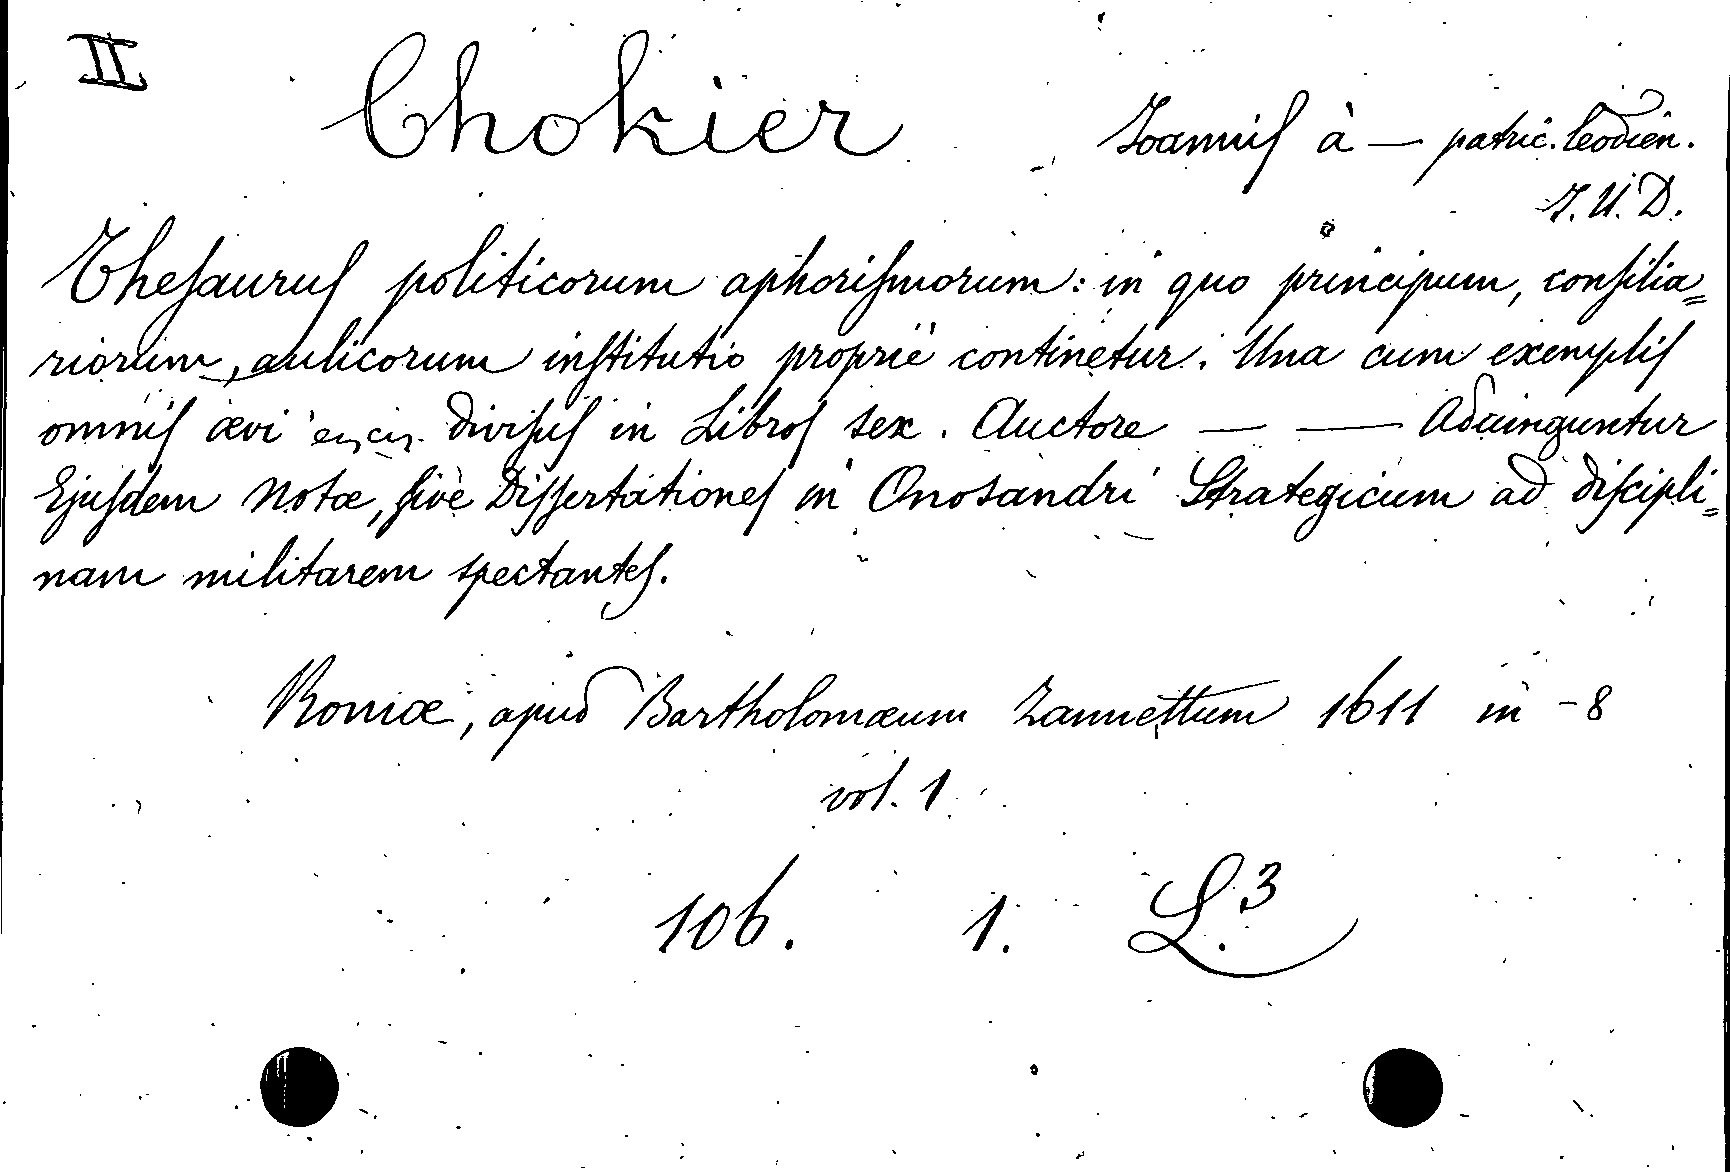 II
Chokier Joannis à — patric. leodien.
J. U. D.
Thesaurus politicorum aphorismorum: in quo principum, consilia=
riorum, aulicorum institutio propriè continetur. Una cum exemplis
omnis ævi divisus in Libros sex. Auctore — — Adiunguntur
Ejusdem Notæ, sivè Dissertationes in Onosandri Strategicum ad discipli=
nam militarem spectantes.
Romæ, apud Bartholomæum Zannettum 1611 in -8
vol. 1
106. 1. L.3